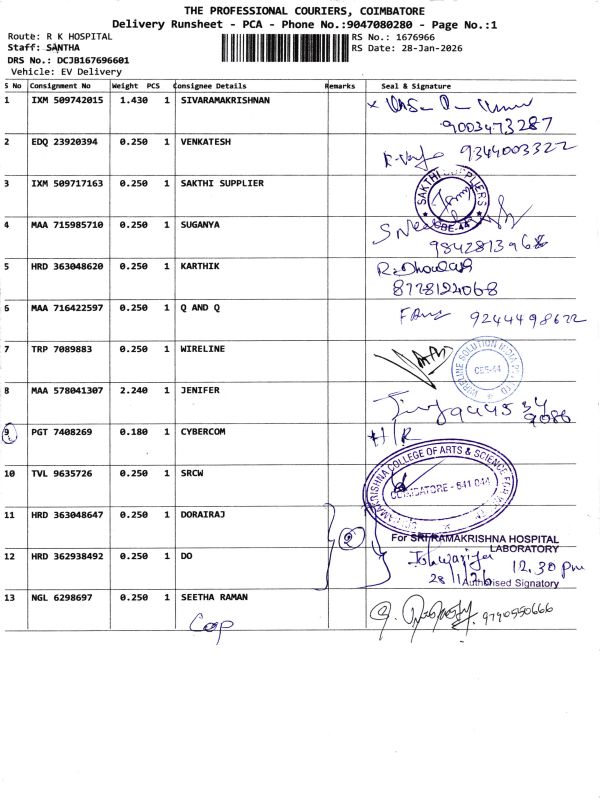 THE PROFESSIONAL COURIERS, COIMBATORE
Delivery Runsheet - PCA - Phone No.:9047080280 - Page No.:1
Route: R K HOSPITAL
Staff: SANTHA
DRS No.: DCJB167696601
Vehicle: EV Delivery
RS No.: 1676966
RS Date: 28-Jan-2026
S No Consignment No Weight PCS Consignee Details Remarks Seal & Signature
1 IXM 509742015 1.430 1 SIVARAMAKRISHNAN
9003473287
2 EDQ 23920394 0.250 1 VENKATESH 9344003322
3 IXM 509717163 0.250 1 SAKTHI SUPPLIER
SAKTHI SUPPLIERS
CBE-44
4 MAA 715985710 0.250 1 SUGANYA
9842813968
5 HRD 363048620 0.250 1 KARTHIK
8778124068
6 MAA 716422597 0.250 1 Q AND Q 9244498622
7 TRP 7089883 0.250 1 WIRELINE
WIRELINE SOLUTION INDIA PVT LTD
CBE-44
8 MAA 578041307 2.240 1 JENIFER
9 PGT 7408269 0.180 1 CYBERCOM H/R
10 TVL 9635726 0.250 1 SRCW
RAMAKRISHNA COLLEGE OF ARTS & SCIENCE FOR WOMEN
COIMBATORE - 641 044
11 HRD 363048647 0.250 1 DORAIRAJ
2
For SRI RAMAKRISHNA HOSPITAL
LABORATORY
12 HRD 362938492 0.250 1 DO
12.30 pm
28/1/26
Authorised Signatory
13 NGL 6298697 0.250 1 SEETHA RAMAN
9790550666